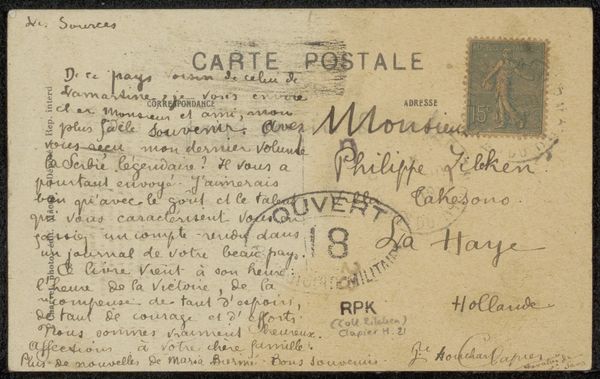 Les Sources
CARTE POSTALE
CORRESPONDANCE
ADRESSE
De ce pays voisin de celui de
Lamartine, je vous envoie
cher Monsieur et ami, mon
plus fidèle souvenir. Avez
vous reçu mon dernier volume
la Serbie légendaire? Il vous a
pourtant envoyé. J'aimerais
bien qu'avec le goût et le talent
qui vous caractérisent vous en
un compte-rendu dans
un journal de votre beau pays.
Ce livre vient à son heure
l'heure de la victoire, de la
récompense de tant d'espoirs,
de tant de courage et d'efforts
Nous sommes vraiment heureux.
Affections à votre chère famille.
Plus de nouvelles de Maria Biermé. Bons souvenirs
Monsieur
Philippe Zilcken
La Haye
Hollande
15
OUVERT
8
MILITAIRE
RPK
(Coll Zilcken)
Clapier H. 21